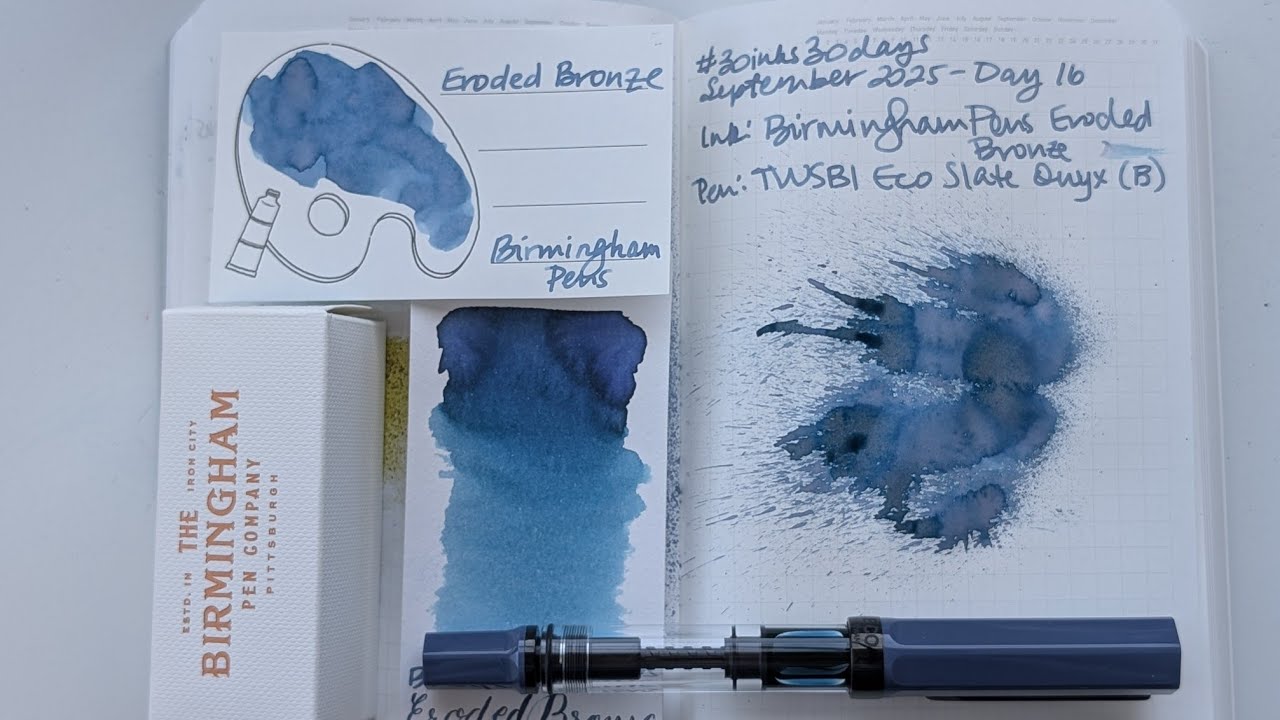 Eroded Bronze
Birmingham
Pens
#30inks30days
September 2025 - Day 16
Ink: Birmingham Pens Eroded
Bronze
Pen: TWSBI Eco Slate Onyx (B)
ESTD. IN THE IRON CITY
BIRMINGHAM
PEN COMPANY
PITTSBURGH
Eroded Bronze
January February March April May June July August September October November December
January February March April May June July August September October November December
Monday Tuesday Wednesday Thursday Friday Saturday Sunday